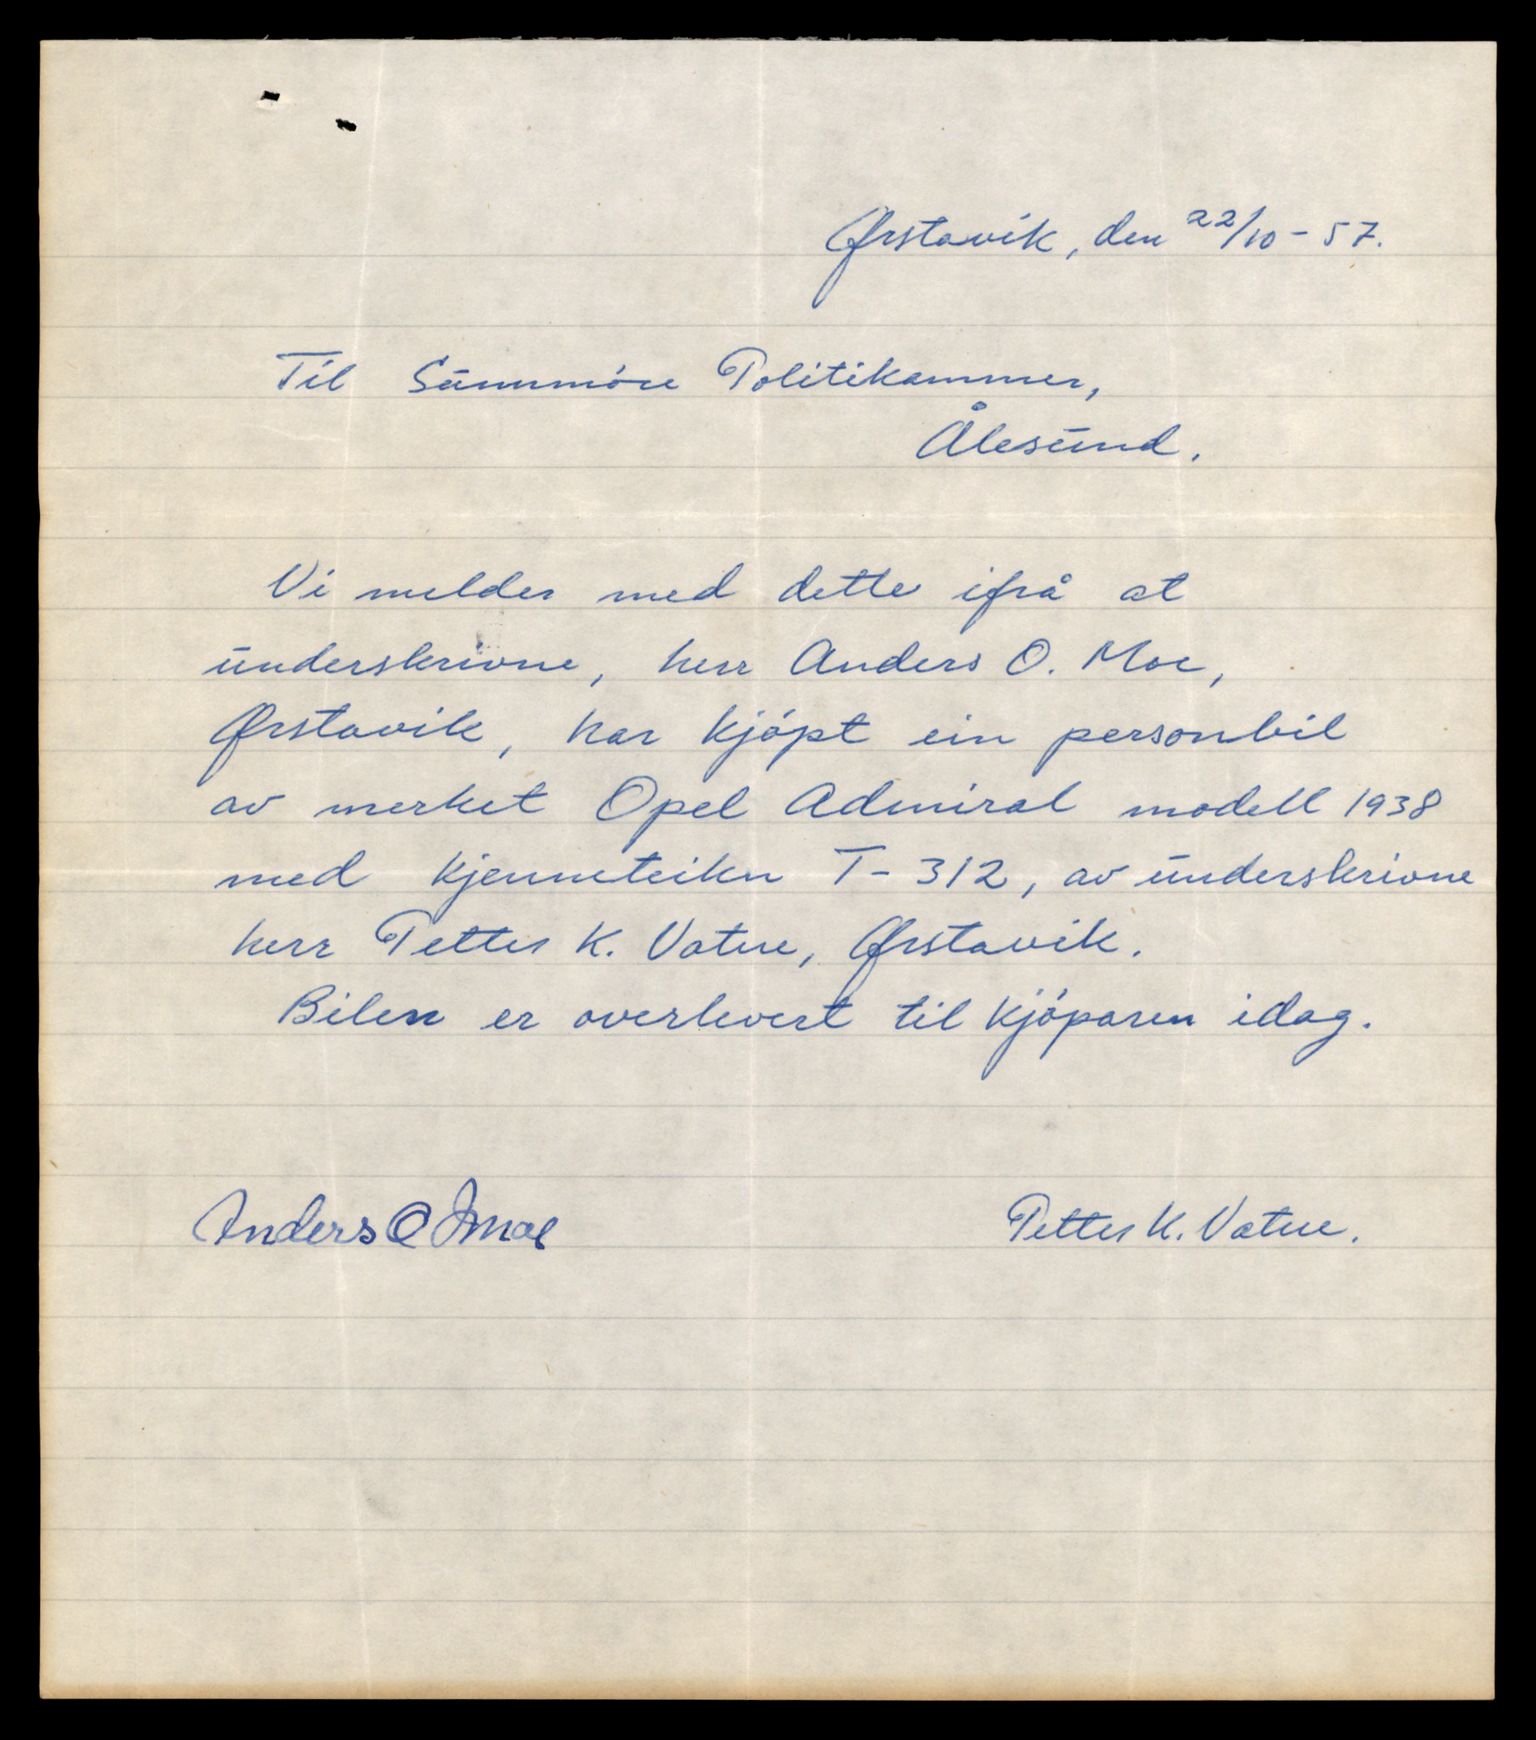 Ørstavik, den 22/10 - 57.
Til Sunnmöre Politikammer,
Ålesund.
Vi melder med dette ifrå at
underskrivne, herr Anders O. Moe,
Ørstavik, har kjöpt ein personbil
av merket Opel Admiral modell 1938
med kjenneteikn T- 312, av underskrivne
herr Petter K. Vatne, Ørstavik.
Bilen er overlevert til kjöparen idag.
Anders O Moe
Petter K. Vatne.